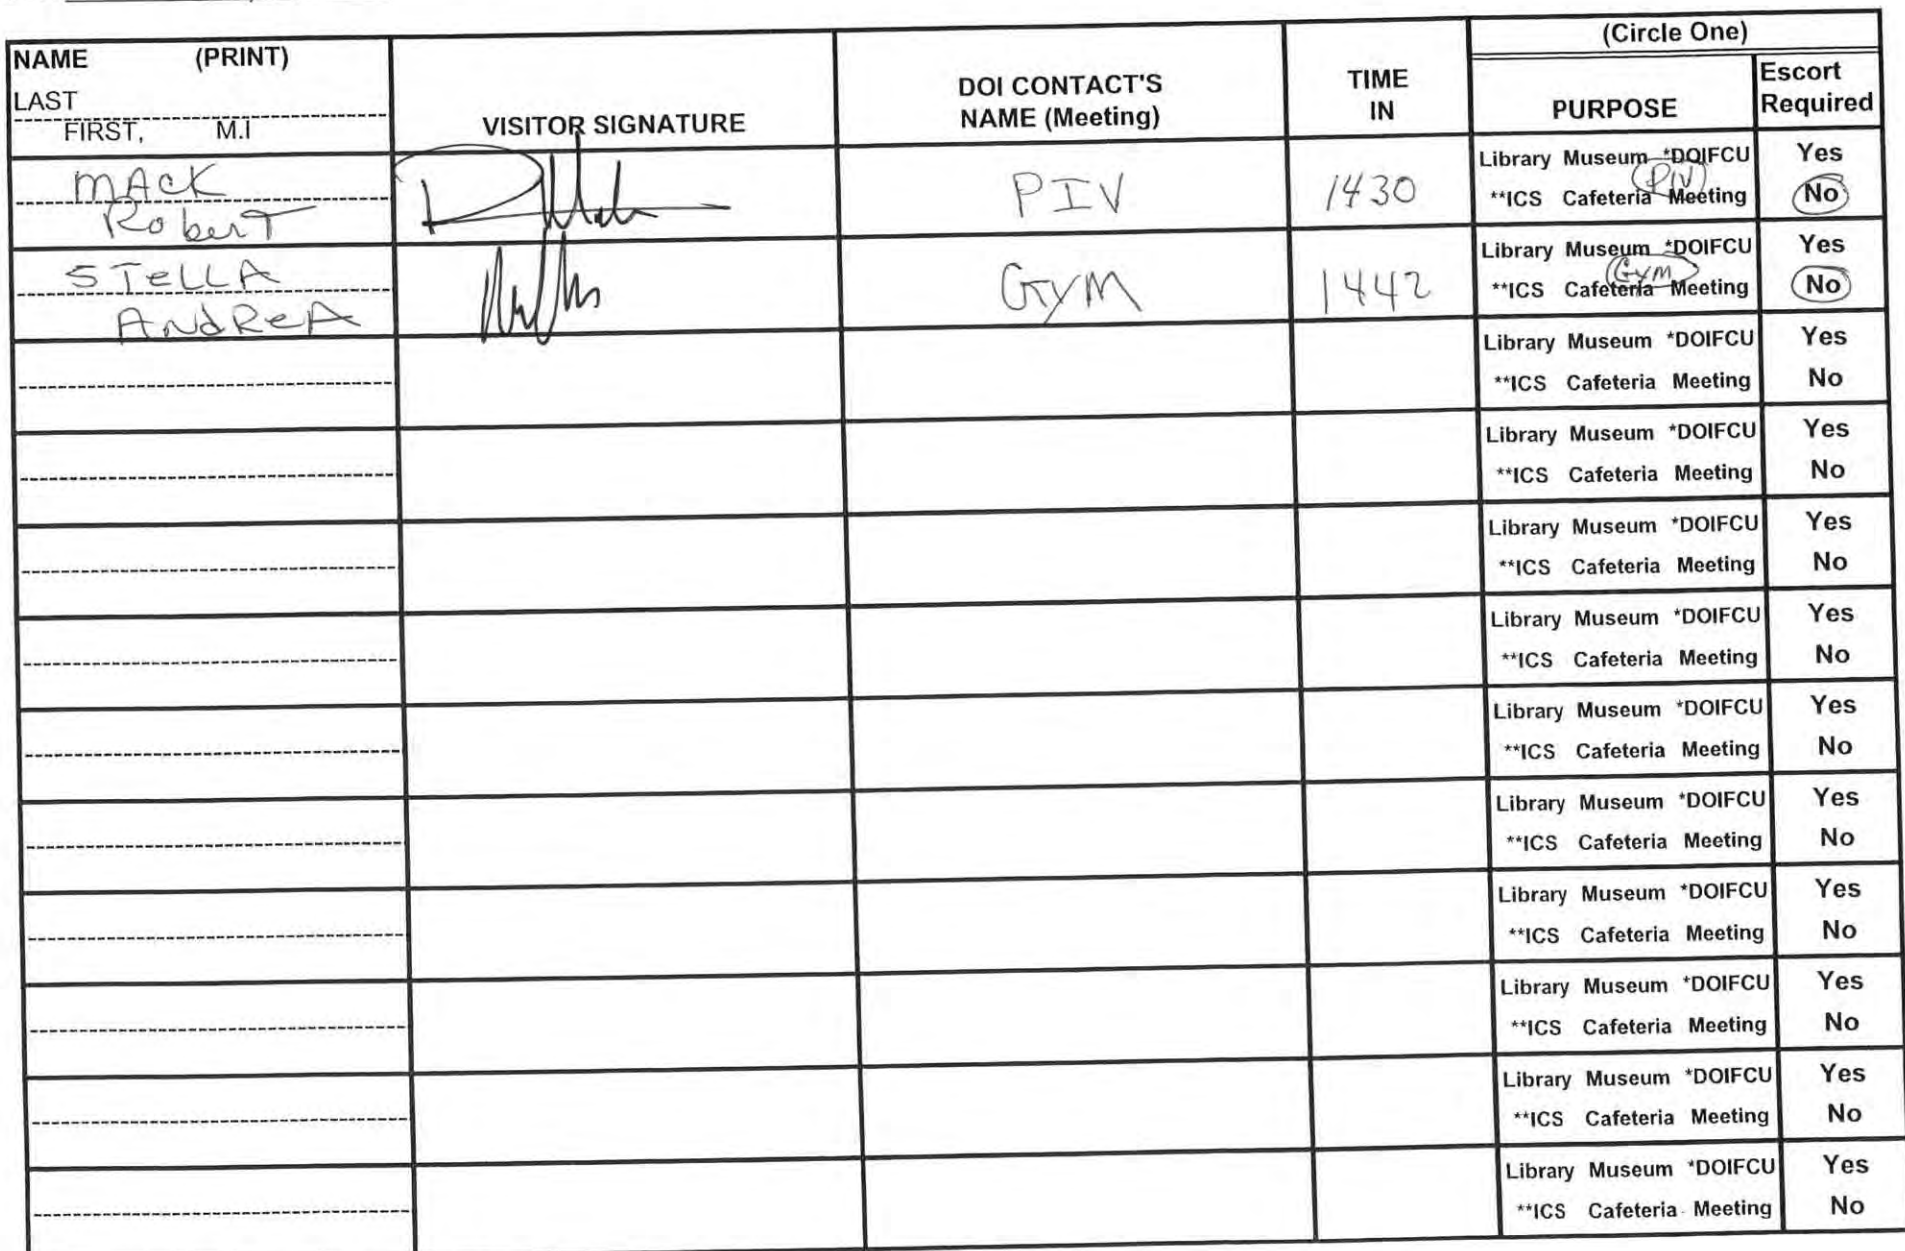 (Circle One)
NAME (PRINT)
LAST
FIRST, M.I
VISITOR SIGNATURE
DOI CONTACT'S
NAME (Meeting)
TIME
IN
PURPOSE
Escort
Required
MACK
Robert
PIV
1430
Library Museum *DOIFCU
PIV
**ICS Cafeteria Meeting
Yes
No
STELLA
ANdReA
GYM
1442
Library Museum *DOIFCU
GYM
**ICS Cafeteria Meeting
Yes
No
Library Museum *DOIFCU
**ICS Cafeteria Meeting
Yes
No
Library Museum *DOIFCU
**ICS Cafeteria Meeting
Yes
No
Library Museum *DOIFCU
**ICS Cafeteria Meeting
Yes
No
Library Museum *DOIFCU
**ICS Cafeteria Meeting
Yes
No
Library Museum *DOIFCU
**ICS Cafeteria Meeting
Yes
No
Library Museum *DOIFCU
**ICS Cafeteria Meeting
Yes
No
Library Museum *DOIFCU
**ICS Cafeteria Meeting
Yes
No
Library Museum *DOIFCU
**ICS Cafeteria Meeting
Yes
No
Library Museum *DOIFCU
**ICS Cafeteria Meeting
Yes
No
Library Museum *DOIFCU
**ICS Cafeteria Meeting
Yes
No